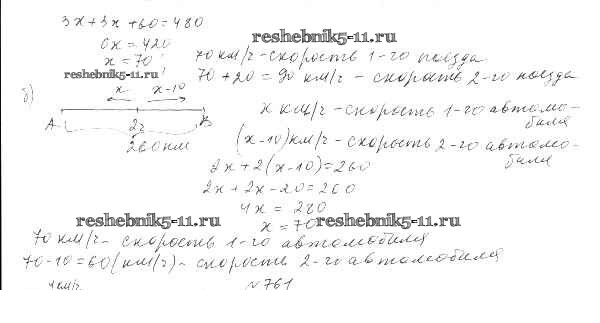 3x+3x+60=480
6x=420
x=70
reshebnik5-11.ru
70 км/ч - скорость 1-го поезда
70+20=90 км/ч - скорость 2-го поезда
reshebnik5-11.ru
б)
x x-10
A 2ч B
260 км
x км/ч - скорость 1-го автомо-
биля
(x-10) км/ч - скорость 2-го автомо-
биля
2x+2(x-10)=260
2x+2x-20=260
4x=280
x=70
reshebnik5-11.ru reshebnik5-11.ru
70 км/ч - скорость 1-го автомобиля
70-10=60 (км/ч) - скорость 2-го автомобиля
№761